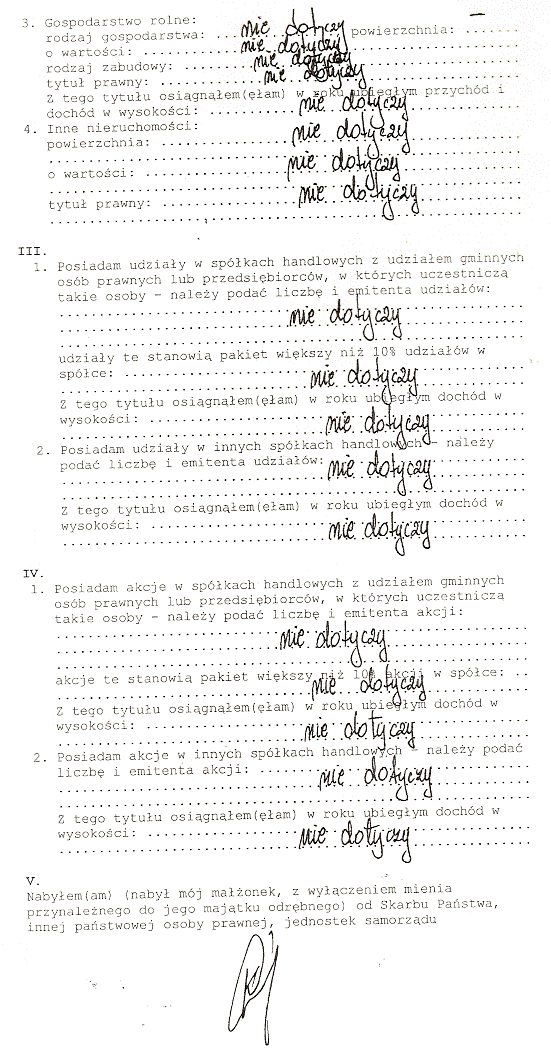 3. Gospodarstwo rolne:
rodzaj gospodarstwa: ... nie dotyczy powierzchnia: ......
o wartości: ........ nie dotyczy
rodzaj zabudowy: ........ nie dotyczy
tytuł prawny: ........ nie dotyczy
Z tego tytułu osiągnąłem(ęłam) w roku ubiegłym przychód i
dochód w wysokości: ........ nie dotyczy
4. Inne nieruchomości:
powierzchnia: ........ nie dotyczy
o wartości: ........ nie dotyczy
tytuł prawny: ........ nie dotyczy
III.
1. Posiadam udziały w spółkach handlowych z udziałem gminnych
osób prawnych lub przedsiębiorców, w których uczestniczą
takie osoby – należy podać liczbę i emitenta udziałów:
nie dotyczy
udziały te stanowią pakiet większy niż 10% udziałów w
spółce: ........ nie dotyczy
Z tego tytułu osiągnąłem(ęłam) w roku ubiegłym dochód w
wysokości: ........ nie dotyczy
2. Posiadam udziały w innych spółkach handlowych – należy
podać liczbę i emitenta udziałów: nie dotyczy
Z tego tytułu osiągnąłem(ęłam) w roku ubiegłym dochód w
wysokości: ........ nie dotyczy
IV.
1. Posiadam akcje w spółkach handlowych z udziałem gminnych
osób prawnych lub przedsiębiorców, w których uczestniczą
takie osoby – należy podać liczbę i emitenta akcji:
nie dotyczy
akcje te stanowią pakiet większy niż 10% akcji w spółce: ..
nie dotyczy
Z tego tytułu osiągnąłem(ęłam) w roku ubiegłym dochód w
wysokości: ........ nie dotyczy
2. Posiadam akcje w innych spółkach handlowych – należy podać
liczbę i emitenta akcji: ........ nie dotyczy
Z tego tytułu osiągnąłem(ęłam) w roku ubiegłym dochód w
wysokości: ........ nie dotyczy
V.
Nabyłem(am) (nabył mój małżonek, z wyłączeniem mienia
przynależnego do jego majątku odrębnego) od Skarbu Państwa,
innej państwowej osoby prawnej, jednostek samorządu